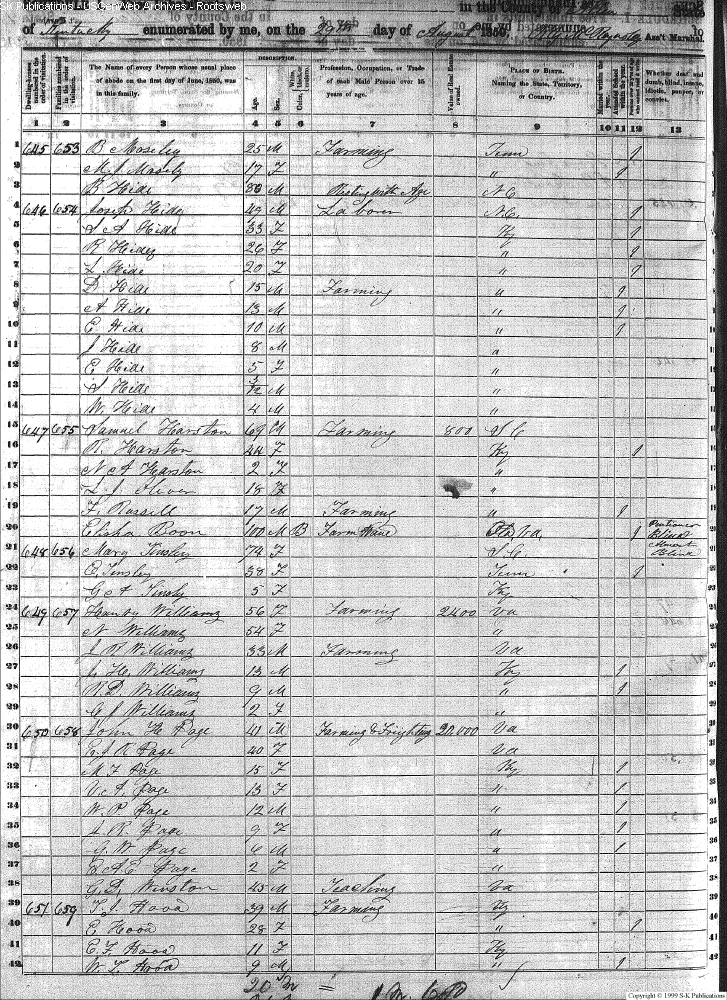 SK Publications - USGenWeb Archives - Rootsweb
in the County of
of Kentucky enumerated by me, on the 29th day of August 1850. Ass't Marshal
DESCRIPTION
Dwelling-houses numbered in the order of visitation. Families numbered in the order of visitation. The Name of every Person whose usual place of abode on the first day of June, 1850, was in this family. Age. Sex. White, Black, or mulatto. Profession, Occupation, or Trade of each Male Person over 15 years of age. Value of Real Estate owned. PLACE OF BIRTH. Naming the State, Territory, or Country. Married within the year. Attended School within the year. Whether deaf and dumb, blind, insane, idiotic, pauper, or convict.
1 2 3 4 5 6 7 8 9 10 11 12 13
1 645 653 B Moseley 25 M Farming Tenn 1
2 M J Mosely 17 F " 1
3 B. Hide M N.C
4 646 654 Joseph Hide 49 M Labour N.C. 1
5 S A Hide 33 F Ky 1
6 R Hides 26 F " 1
7 L Hide 20 F " 1
8 D. Hide 15 M Farming " 1
9 A Hide 13 M " 1
10 E Hide 10 M " 1
11 J Hide 8 M "
12 E Hide 5 F "
13 S Hide 3/12 M "
14 W. Hide 4 M "
15 647 655 Samuel Harston 69 M Farming 800 S C
16 R. Harston 44 F Ky 1
17 N A Harston 2 F "
18 L J Oliver 18 F "
19 F. Russell 17 M Farming " 1
20 Elisha Boon 100 M B Farm Va 1 Blind
21 648 656 Mary Tinsley 74 F S.C. Almost Blind
22 E Tinsley 38 F Tenn 1
23 G A Tinsly 5 F Ky
24 649 657 Williams 56 F Farming 2400 Va
25 N Williams 54 F "
26 J R Williams 33 M Farming Va
27 J. H. Williams 13 M Ky 1
28 R D. Williams 9 M " 1
29 G J Williams 2 F "
30 650 658 John H. Page 41 M Farming & 20,000 Va
31 E J R Page 40 F Va
32 M F Page 15 F Ky 1
33 V. A. Page 13 F " 1
34 W. P. Page 12 M " 1
35 S. R. Page 9 F " 1
36 G. W Page 6 M " 1
37 Page 2 F "
38 C. D. Winston 45 M Teaching Va
39 651 659 T. J Hood 39 M Farming Ky
40 E Hood 28 F " 1
41 E. F. Hood 11 F Ky
42 W. T. Hood 9 M " 1
20 M
Copyright © 1999 S-K Publications